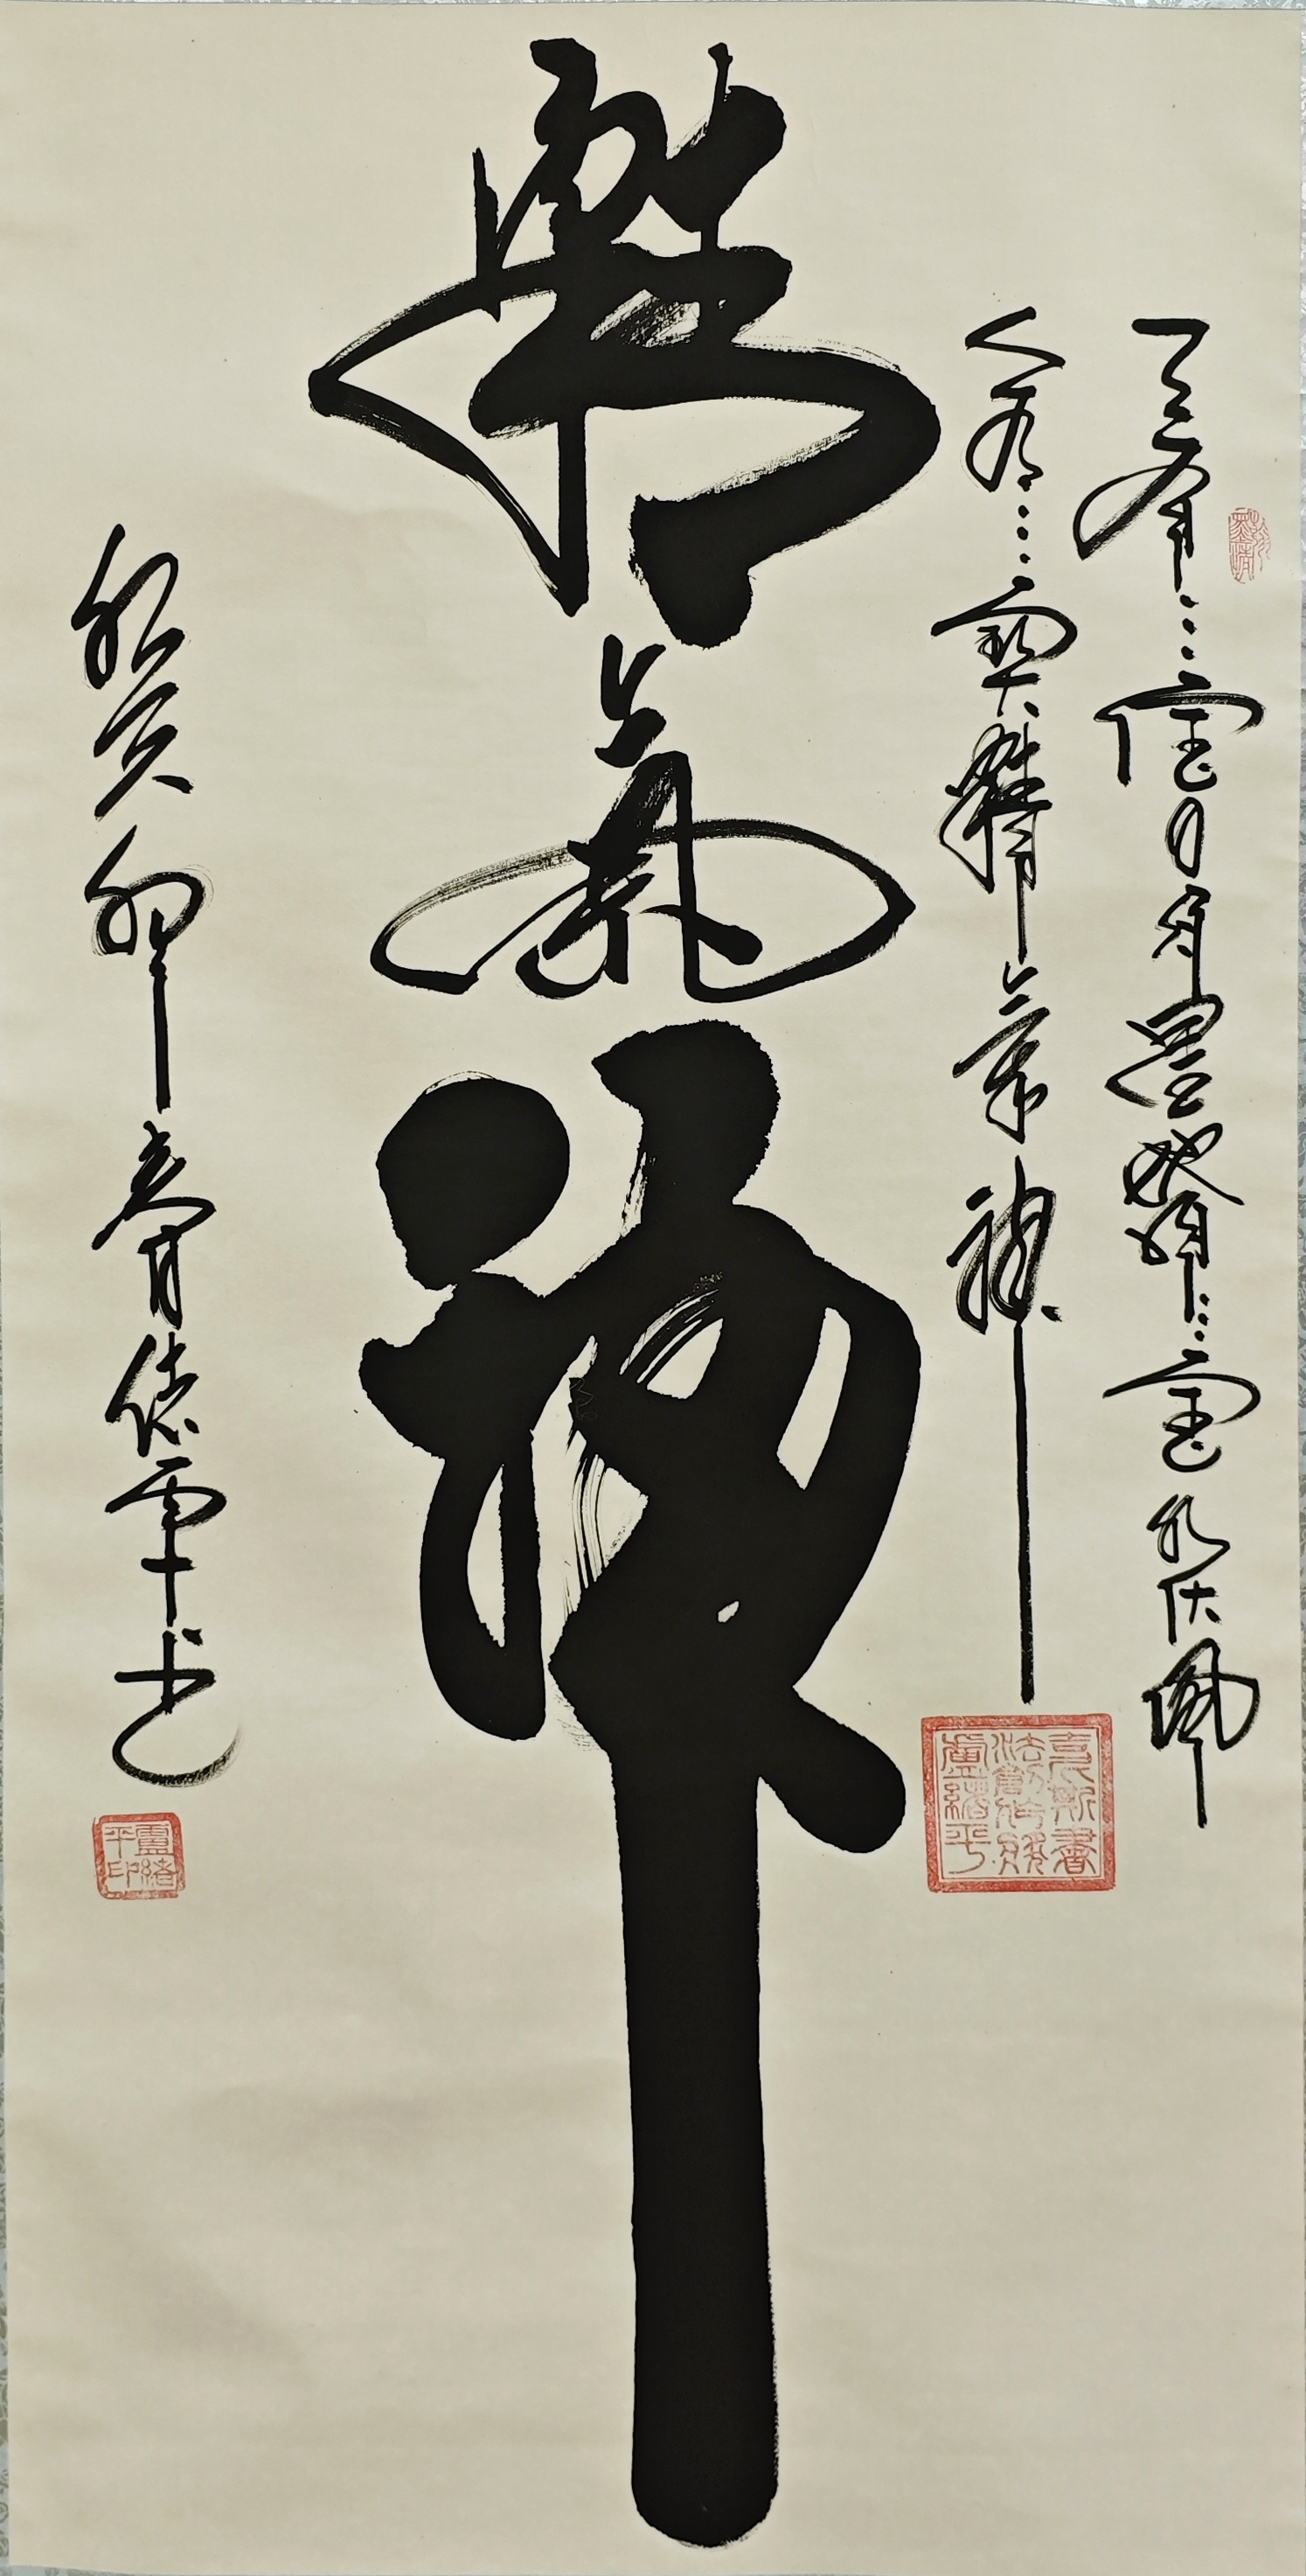 天有三寶日月星地有三寶水火風
人有三寶精氣神
精氣神
癸卯春月緒平書
盧緒平印